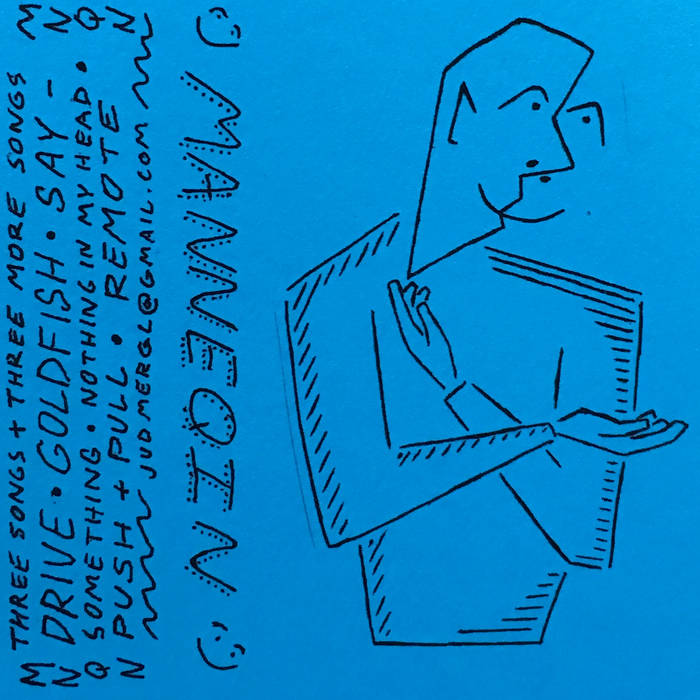 M THREE SONGS + THREE MORE SONGS M
N DRIVE • GOLDFISH • SAY – N
Q SOMETHING • NOTHING IN MY HEAD • Q
N PUSH + PULL • REMOTE N
JUDMERGL@GMAIL.COM
NIQENNAM